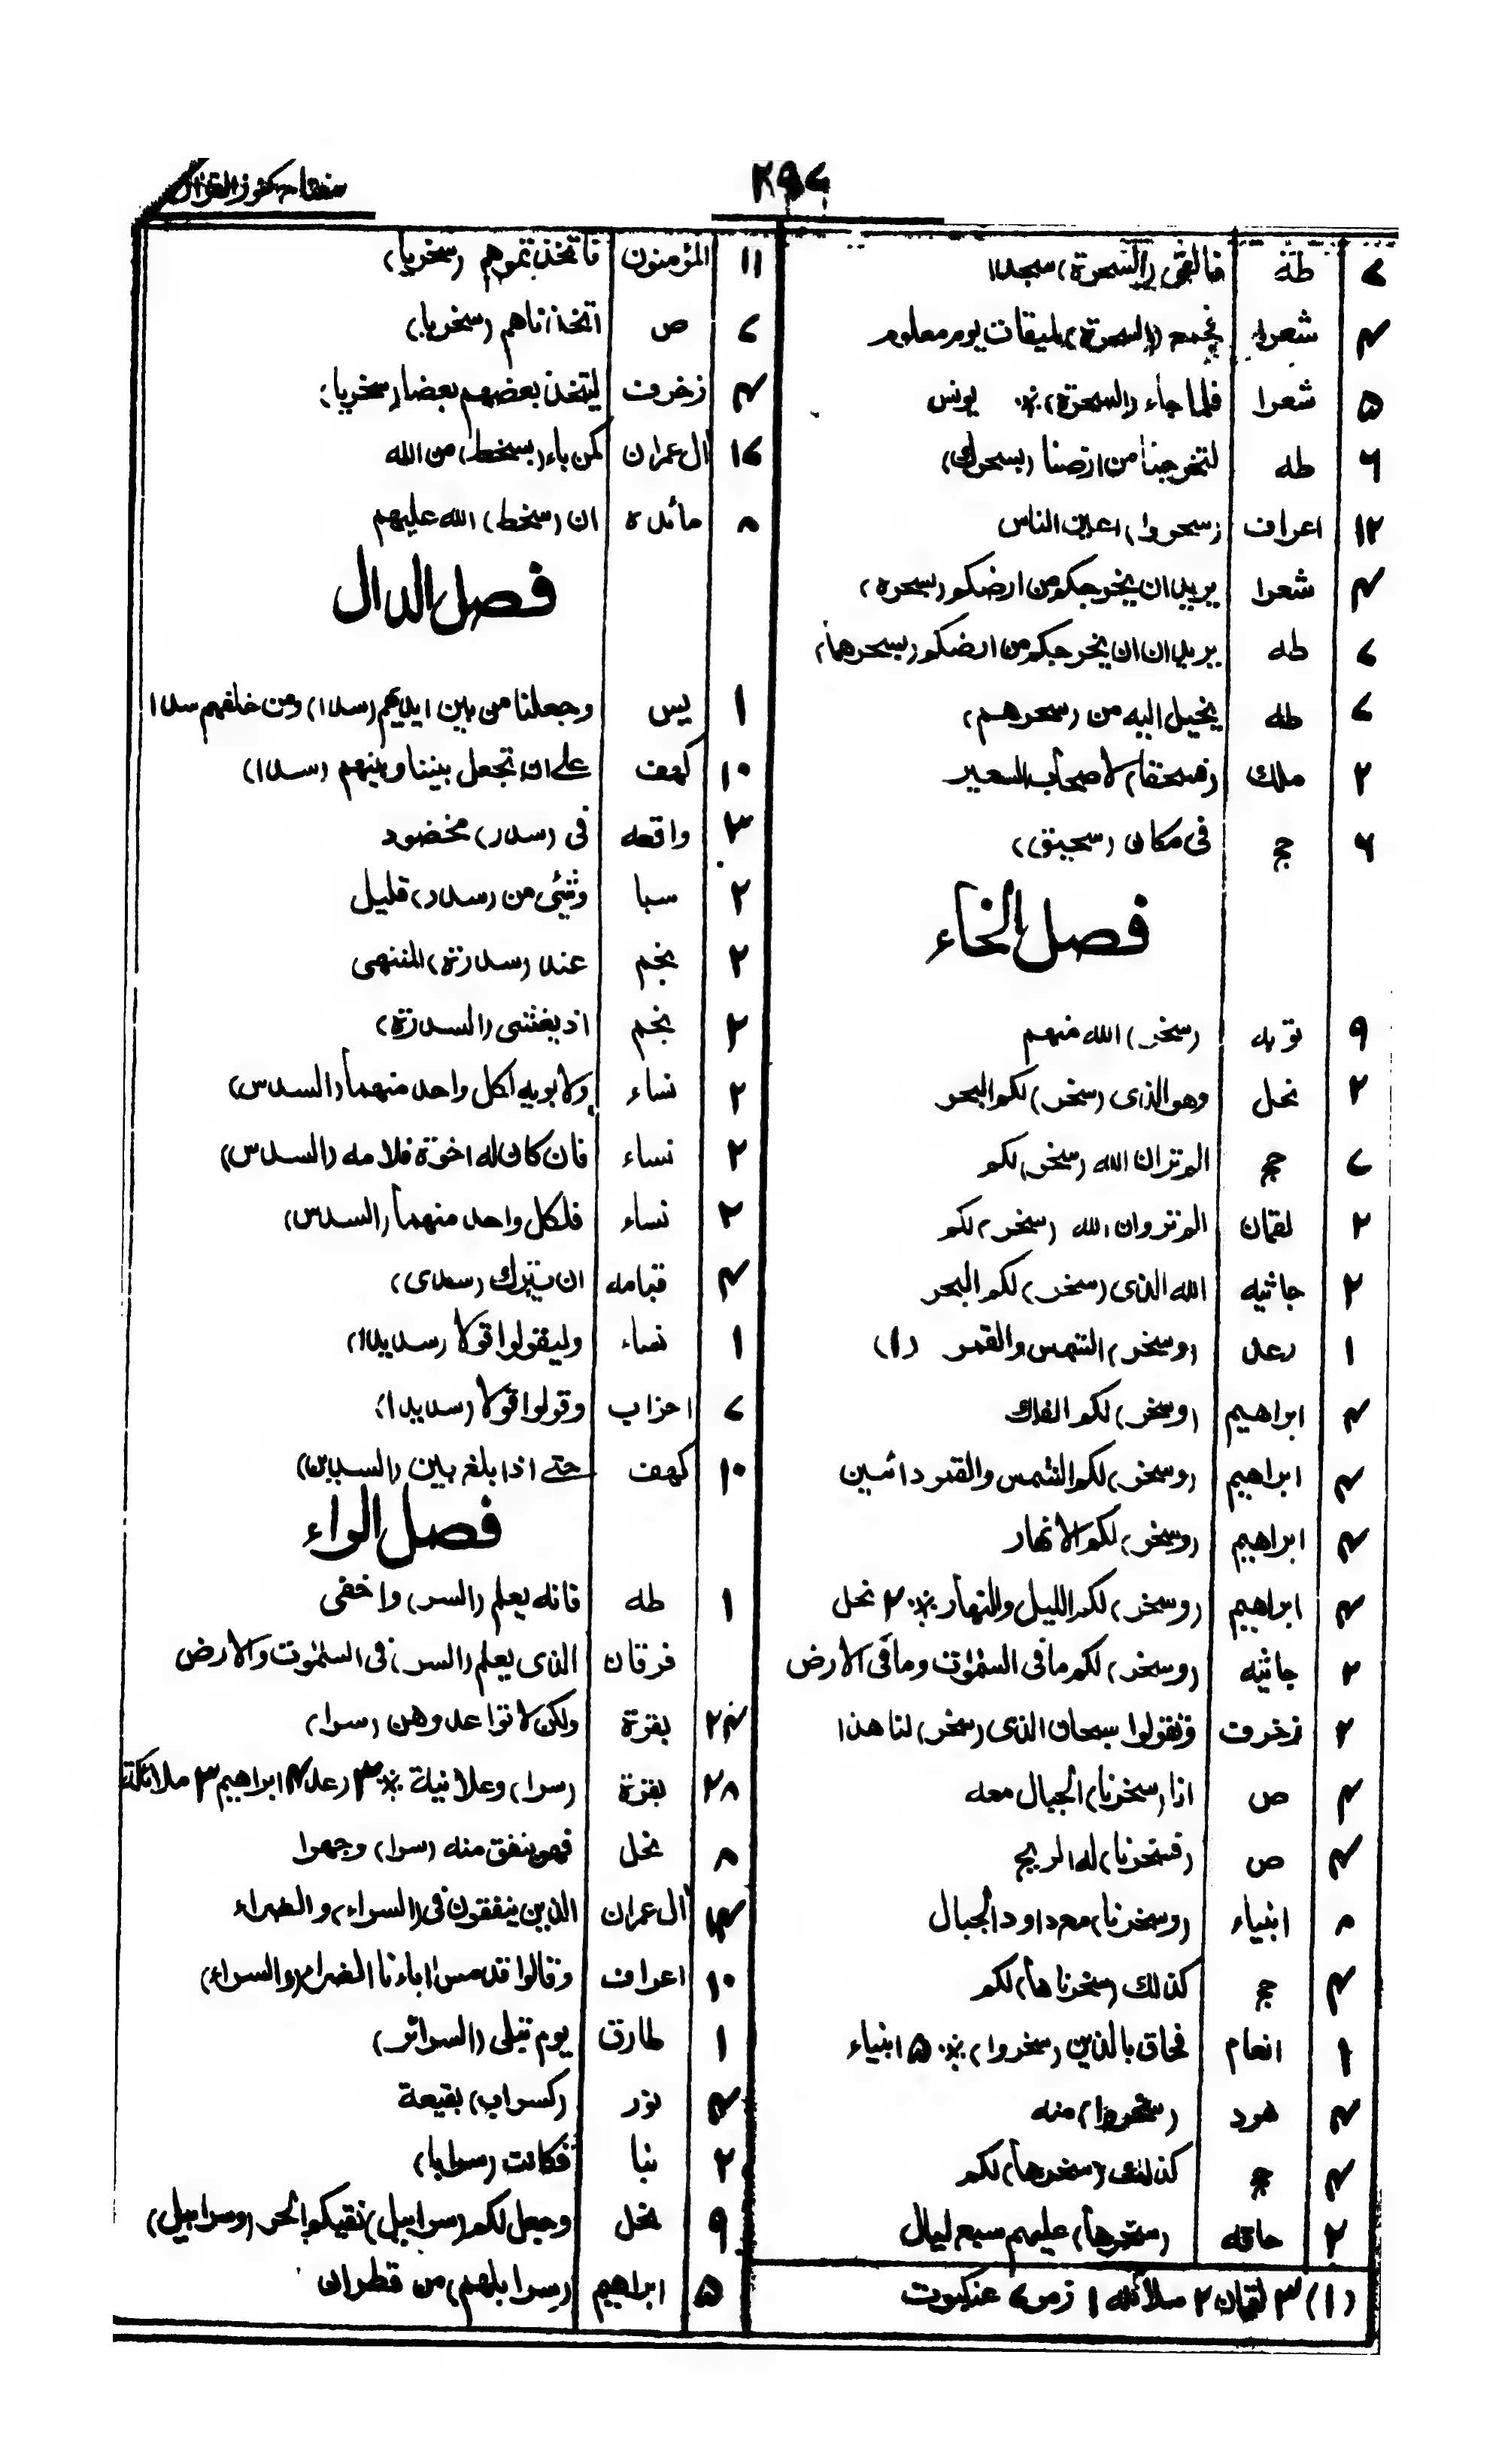 ٢٩٤
مفتاح كنوز القران
٤ طه فالقى (السحرة) سجدا
٣ شعرا فجمع (السحرة) لميقات يوم معلوم
٥ شعرا فلما جاء (السحرة) ٪ يونس
٦ طه لتخرجنا من ارضنا (بسحرك)
١٢ اعراف (سحروا) اعين الناس
٣ شعرا يريد ان يخرجكم من ارضكم (بسحره)
٤ طه يريدان ان يخرجكم من ارضكم (بسحرهما)
٤ طه يخيل اليه من (سحرهم)
٢ ملك (فسحقا) لاصحاب السعير
٦ حج فى مكان (سحيق)
فصل الخاء
٩ توبه (سخر) الله منهم
٢ نحل وهو الذى (سخر) لكم البحر
٤ حج الم تر ان الله (سخر) لكم
٢ لقمان الم تروان الله (سخر) لكم
٢ جاثيه الله الذى (سخر) لكم البحر
١ رعد (وسخر) الشمس والقمر (١)
٣ ابراهيم (وسخر) لكم الفلك
٣ ابراهيم (وسخر) لكم الشمس والقمر دائبين
٣ ابراهيم (وسخر) لكم الانهار
٣ ابراهيم (وسخر) لكم الليل والنهار ٪ ٢ نحل
٢ جاثيه (وسخر) لكم ما فى السمٰوٰت وما فى الارض
٢ زخرف وتقولوا سبحان الذى (سخر) لنا هذا
٣ ص انا (سخرنا) الجبال معه
٣ ص (فسخرنا) له الريح
٨ انبياء (وسخرنا) مع داود الجبال
٣ حج كذلك (سخرناها) لكم
١ انعام فحاق بالذين (سخروا) ٪ ٥ انبياء
٣ هود (سخروا) منه
٣ حج كذلك (سخرها) لكم
٢ حاقه (سخرها) عليهم سبع ليال
(١) ٣ لقمان ٢ ملائكه ١ زمر ٤ عنكبوت
١١ المؤمنون فاتخذتموهم (سخريا)
٤ ص اتخذناهم (سخريا)
٣ زخرف ليتخذ بعضهم بعضا (سخريا)
١٤ ال عمران كمن باء (بسخط) من الله
٨ مائده ان (سخط) الله عليهم
فصل الدال
١ يس وجعلنا من بين ايديهم (سدا) ومن خلفهم سدا
١٠ كهف على ان تجعل بيننا وبينهم (سدا)
٣ واقعه فى (سدر) مخضود
٢ سبا وشئى من (سدر) قليل
٢ نجم عند (سدرة) المنتهى
٢ نجم اذ يغشى (السدرة)
٢ نساء ولابويه لكل واحد منهما (السدس)
٢ نساء فان كان له اخوة فلامه (السدس)
٢ نساء فلكل واحد منهما (السدس)
٣ قيامه ان يترك (سدى)
١ نساء وليقولوا قولا (سديدا)
٤ احزاب وقولوا قولا (سديدا)
١٠ كهف حتے اذا بلغ بين (السدين)
فصل الراء
١ طه فانه يعلم (السر) واخفى
فرقان الذى يعلم (السر) فى السمٰوٰت والارض
٢٣ بقرة ولكن لا تواعدوهن (سرا)
٢٨ بقرة (سرا) وعلانية ٪ ٣ رعد ٣ ابراهيم ٣ ملائكة
٨ نحل فهو ينفق منه (سرا) وجهرا
ال عمران الذين ينفقون فى (السراء) والضراء
١٠ اعراف وقالوا قد مس اباءنا الضراء (والسراء)
١ طارق يوم تبلى (السرائر)
٣ نور (كسراب) بقيعة
٢ نبا فكانت (سرابا)
٩ نحل وجعل لكم (سرابيل) تقيكم الحر (وسرابيل)
٥ ابراهيم (سرابيلهم) من قطران